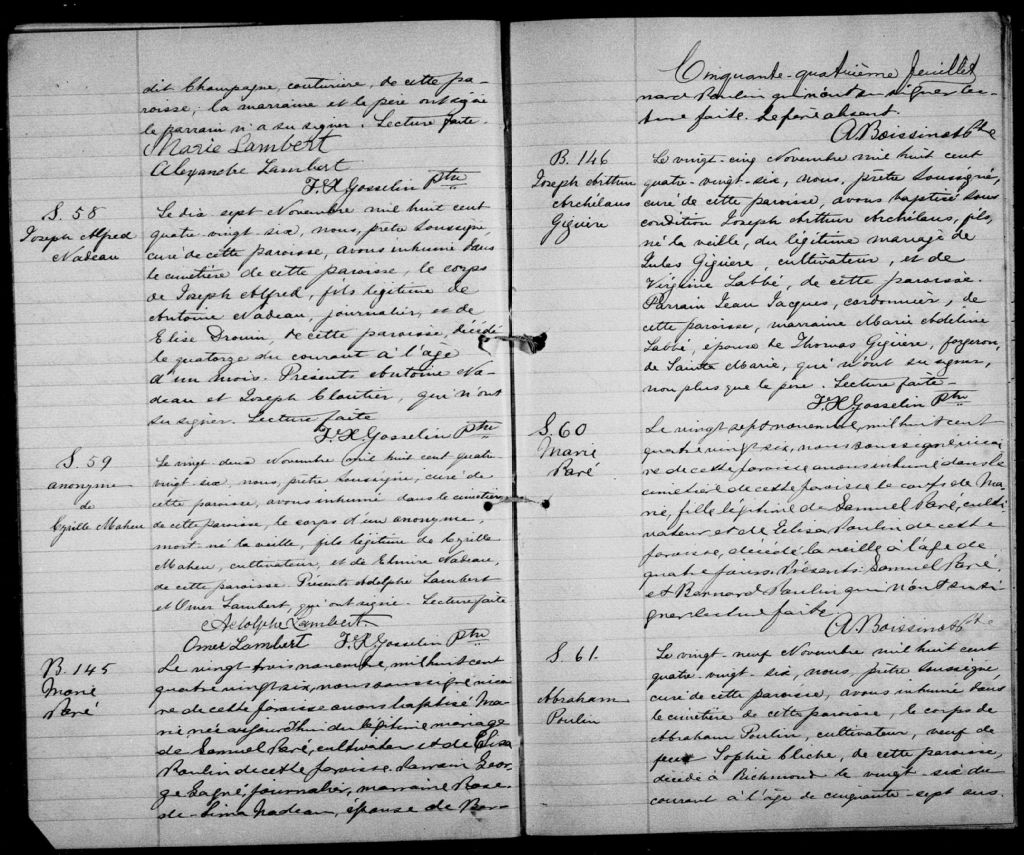 dit Champagne, couturière, de cette pa-
roisse, la marraine et le père ont signé
le parrain n'a su signer. Lecture faite.
Marie Lambert
Alexandre Lambert
F.X. Gosselin Ptre
S. 58
Joseph Alfred
Nadeau
Le dix sept Novembre mil huit cent
quatre vingt six, nous, prêtre soussigné,
curé de cette paroisse, avons inhumé dans
le cimetière de cette paroisse, le corps
de Joseph Alfred, fils légitime de
Antoine Nadeau, journalier, et de
Elise Drouin, de cette paroisse, décédé
le quatorze du courant à l'âge
d'un mois. Présents Antoine Na-
deau et Joseph Cloutier, qui n'ont
su signer. Lecture faite
F.X. Gosselin Ptre
S. 59
anonyme
de
Cyrille Maheu
Le vingt deux Novembre mil huit cent quatre
vingt six, nous, prêtre soussigné, curé de
cette paroisse, avons inhumé dans le cimetière
de cette paroisse, le corps d'un anonyme,
mort-né la veille, fils légitime de Cyrille
Maheu, cultivateur, et de Elmire Nadeau,
de cette paroisse. Présents Adolphe Lambert
et Omer Lambert, qui ont signé. Lecture faite
Adolphe Lambert
Omer Lambert F.X. Gosselin Ptre
B. 145
Marie
Paré
Le vingt trois novembre, mil huit cent
quatre vingt six, nous soussigné vicai
re de cette paroisse avons baptisé Ma-
rie née aujourd'hui du légitime mariage
de Samuel Paré, cultivateur et de Elisa
Poulin de cette paroisse. Parrain Geor-
ge Gagné, journalier, marraine Rose-
de-Lima Nadeau, épouse de Ber-
Cinquante-quatrième feuillet
nard Poulin qui n'ont su signer lec-
ture faite. Le père absent.
A Boissinot Ptre
B. 146
Joseph Arthur
Archélaus
Giguère
Le vingt-cinq Novembre mil huit cent
quatre-vingt-six, nous, prêtre soussigné,
curé de cette paroisse, avons baptisé sous
condition Joseph Arthur Archélaus, fils,
né la veille, du légitime mariage de
Jules Giguère, cultivateur, et de
Virginie Labbé, de cette paroisse.
Parrain Jean Jacques, cordonnier, de
cette paroisse, marraine Marie Adeline
Labbé, épouse de Thomas Giguère, forgeron,
de Sainte Marie, qui n'ont su signer,
non plus que le père. Lecture faite-
F.X. Gosselin Ptre
S. 60
Marie
Paré
Le vingt sept novembre, mil huit cent
quatre vingt six, nous soussigné vicai
re de cette paroisse avons inhumé dans le
cimetière de cette paroisse le corps de Ma-
rie, fille légitime de Samuel Paré, culti-
vateur et de Elisa Poulin de cette
paroisse, décédée la veille à l'âge de
quatre jours. Présents: Samuel Paré,
et Bernard Poulin qui n'ont su si
gner lecture faite.
A Boissinot Ptre
S. 61.
Abraham
Poulin
Le vingt-neuf Novembre mil huit cent
quatre-vingt-six, nous, prêtre soussigné,
curé de cette paroisse, avons inhumé dans
le cimetière de cette paroisse, le corps de
Abraham Poulin, cultivateur, veuf de
feue Sophie Cliche, de cette paroisse,
décédé à Richmond le vingt-six du
courant à l'âge de cinquante-sept ans.